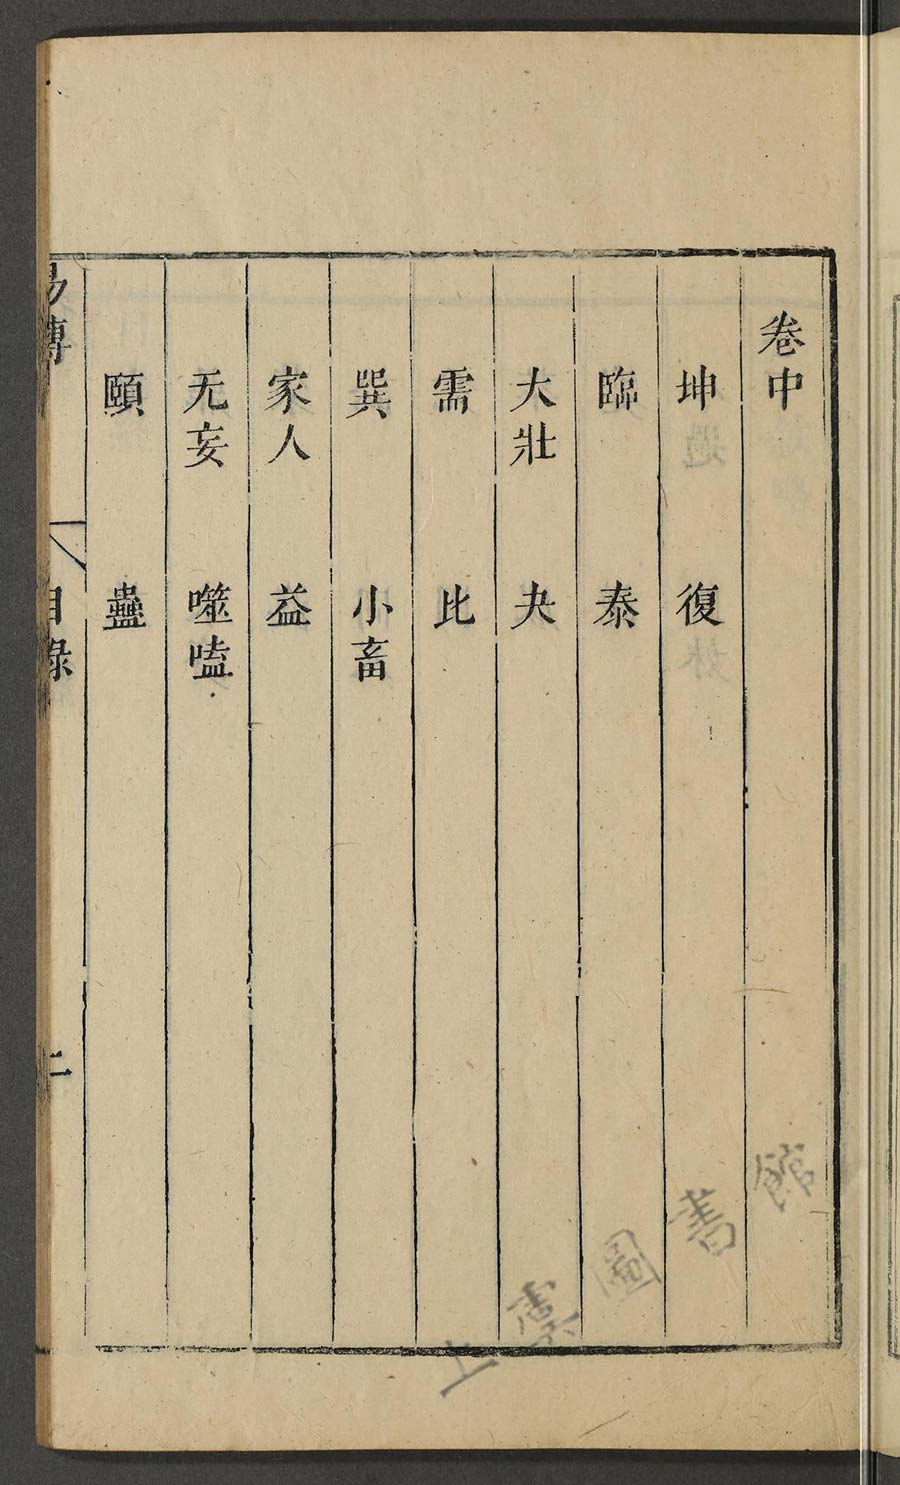 卷中
坤　復
臨　泰
大壯　夬
需　比
巽　小畜
家人　益
无妄　噬嗑
頤　蠱
易傳　目錄　二
上虞圖書館